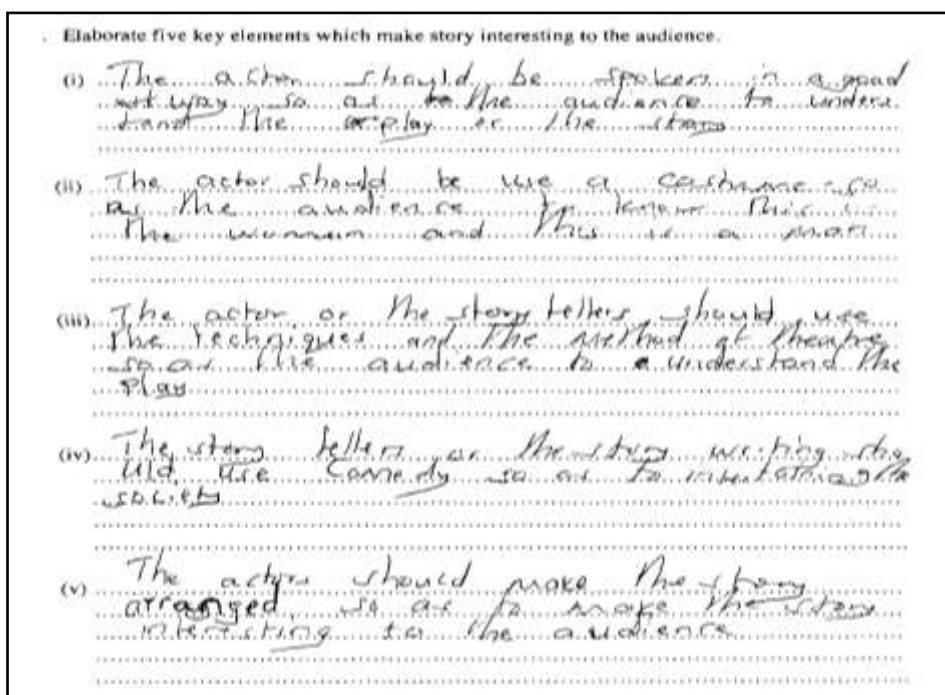 . Elaborate five key elements which make story interesting to the audience.
(i) The actor should be spoken in a good
way so as to the audience to unders
tand the play or the story
(ii) The actor should be use a costume so
as the audience to know this is
the wumman and this is a man
(iii) The actor or the story tellers should use
the techniques and the method of theatre
so as the audience to understand the
play
(iv) The story tellers or the story writing sho
uld use Comedy so as to the
society
(v) The actors should make the story
arranged so as to make the story
interesting to the audience